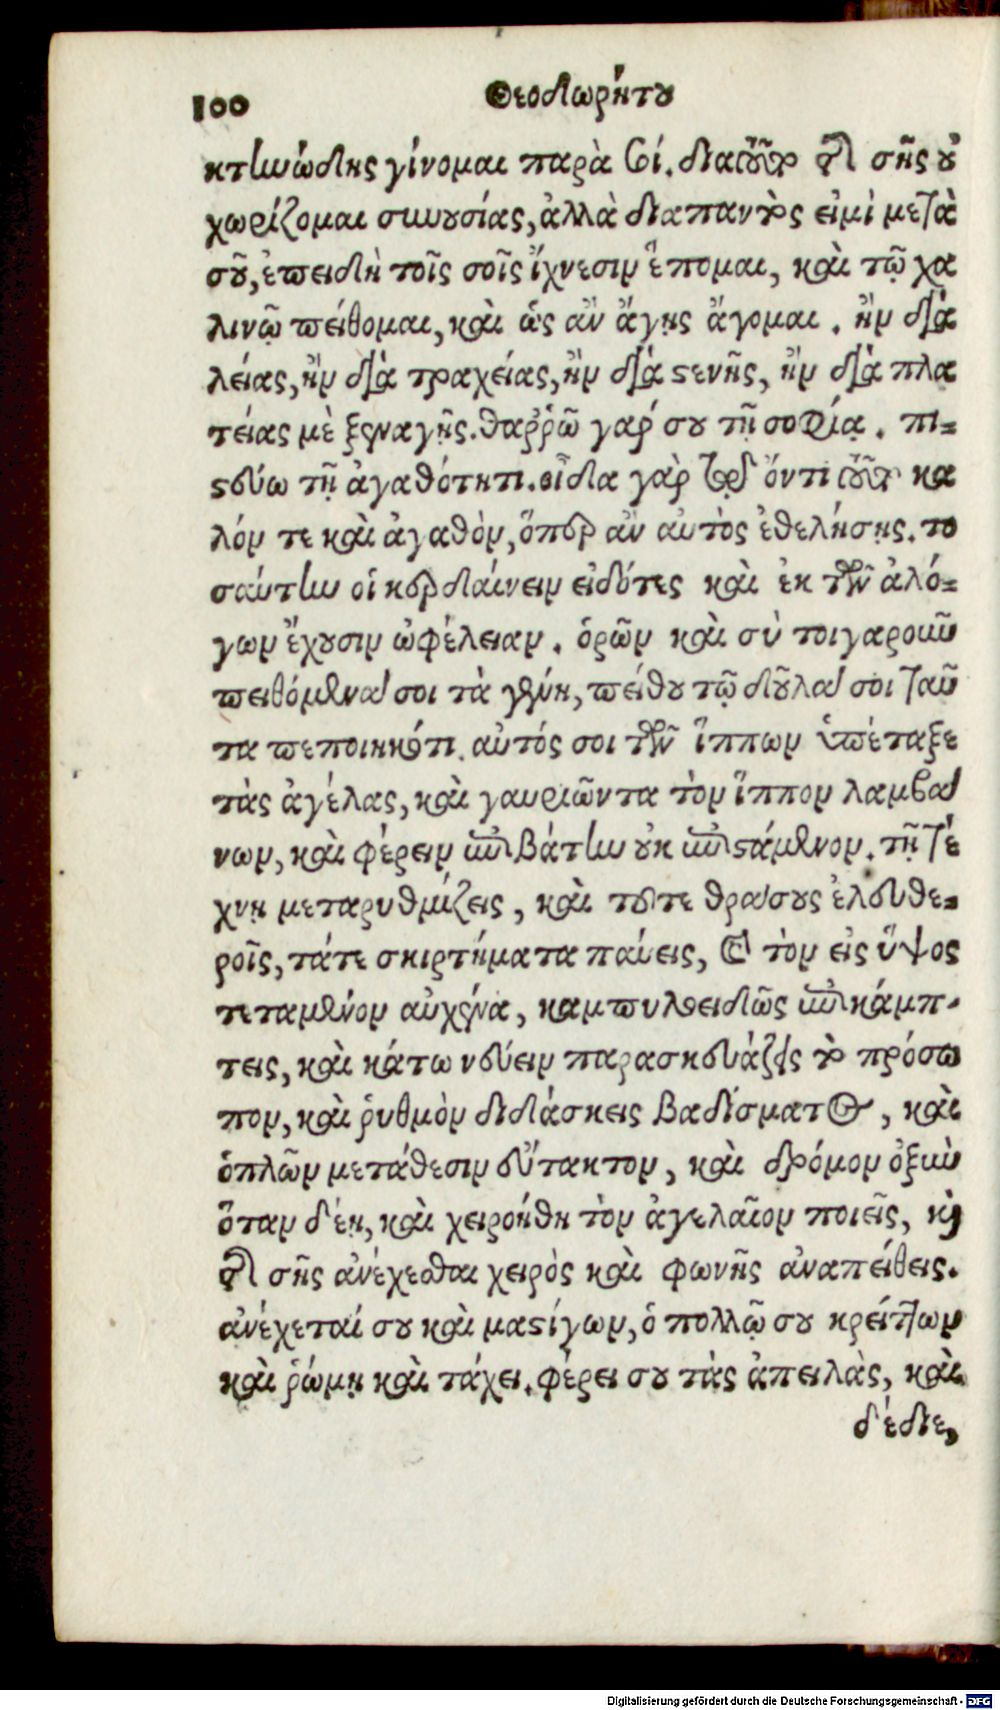 100 Θεοδωρήτου
κτηνώδης γίνομαι παρὰ σοί. διατοῦτο τῆς σῆς οὐ
χωρίζομαι συνουσίας, ἀλλὰ διαπαντός εἰμὶ μετὰ
σοῦ, ἐπειδὴ τοῖς σοῖς ἴχνεσιν ἕπομαι, καὶ τῷ χα
λινῷ πείθομαι, καὶ ὡς ἂν ἄγῃς ἄγομαι. ἢν διὰ
λείας, ἢν διὰ τραχείας, ἢν διὰ στενῆς, ἢν διὰ πλα
τείας μὲ ξεναγῇς. θαῤῥῶ γάρ σου τῇ σοφίᾳ. πι-
στεύω τῇ ἀγαθότητι. οἶδα γὰρ τῷ ὄντι τοῦτο κα
λόν τε καὶ ἀγαθὸν, ὅπερ ἂν αὐτὸς ἐθελήσῃς. το
σαύτην οἱ κερδαίνειν εἰδότες καὶ ἐκ τῶν ἀλό-
γων ἔχουσιν ὠφέλειαν. ὁρῶν καὶ σὺ τοιγαροῦν
πειθόμενά σοι τὰ γένη, πείθου τῷ δοῦλά σοι ταῦ
τα πεποιηκότι. αὐτός σοι τῶν ἵππων ὑπέταξε
τὰς ἀγέλας, καὶ γαυριῶντα τὸν ἵππον λαμβά
νων, καὶ φέρειν ἐπιβάτην οὐκ ἐπιστάμενον. τῇ τέ
χνῃ μεταρυθμίζεις, καὶ τούτε θράσους ἐλευθε-
ροῖς, τάτε σκιρτήματα παύεις, καὶ τὸν εἰς ὕψος
τεταμένον αὐχένα, καμπυλοειδῶς ἐπικάμπ-
τεις, καὶ κάτω νεύειν παρασκευάζεις τὸ πρόσω
πον, καὶ ῥυθμὸν διδάσκεις βαδίσματος, καὶ
ὁπλῶν μετάθεσιν εὔτακτον, καὶ δρόμον ὀξὺν
ὅταν δέῃ, καὶ χειροήθη τὸν ἀγελαῖον ποιεῖς, καὶ
τῆς σῆς ἀνέχεσθαι χειρὸς καὶ φωνῆς ἀναπείθεις.
ἀνέχεταί σου καὶ μαστίγων, ὁ πολλῷ σου κρείττων
καὶ ῥώμῃ καὶ τάχει. φέρει σου τὰς ἀπειλὰς, καὶ
δέδιε,
Digitalisierung gefördert durch die Deutsche Forschungsgemeinschaft - DFG